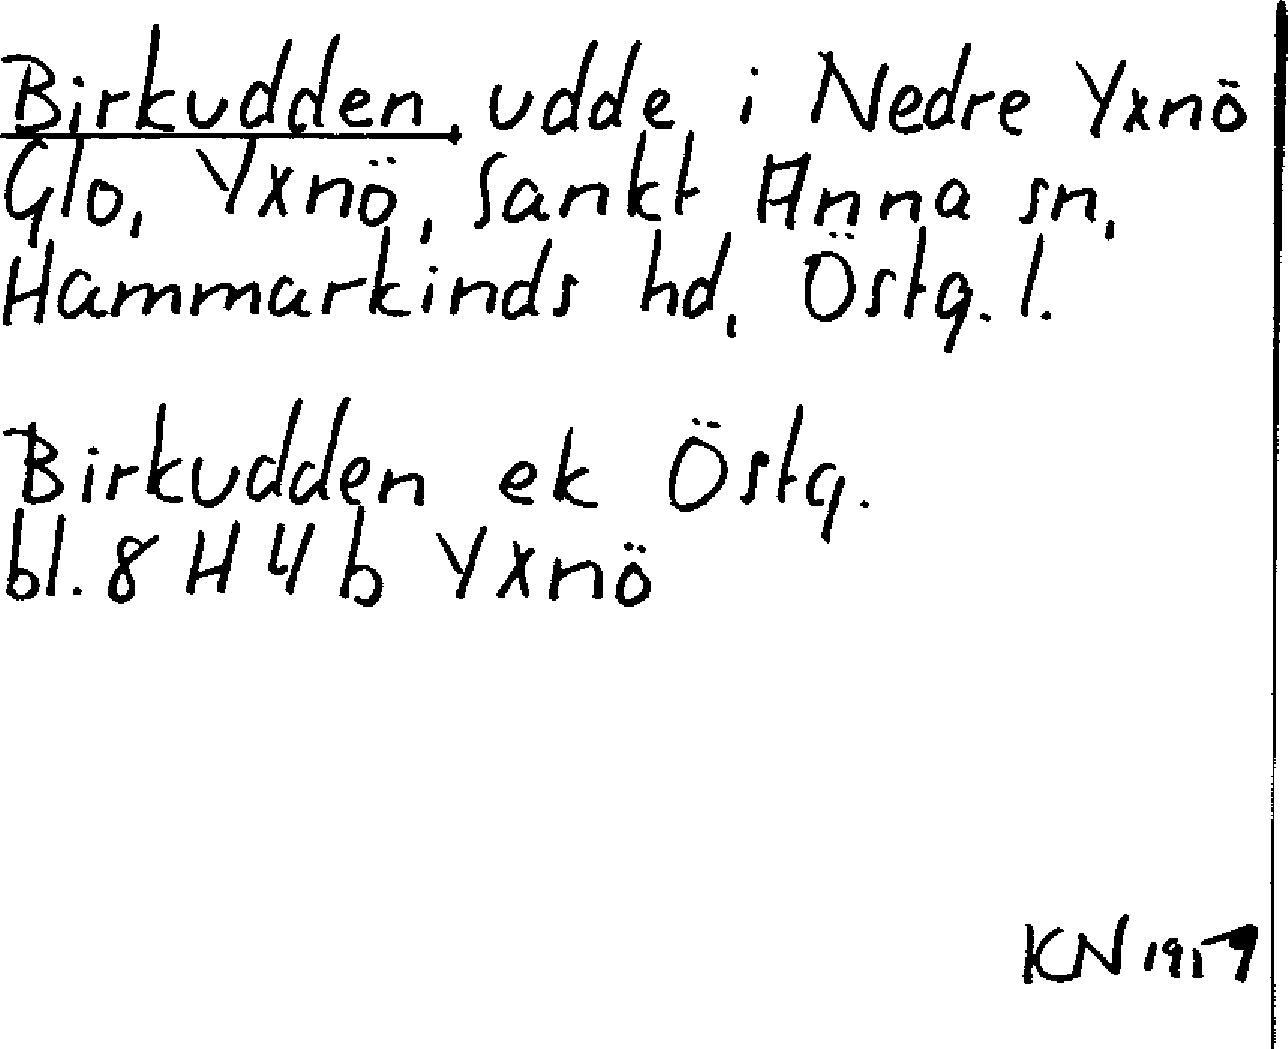 Birkudden, udde i Nedre Yxnö
Glo, Yxnö, Sankt Anna sn,
Hammarkinds hd, Östg. l.
Birkudden ek Östg.
bl. 8 H 4 b Yxnö
KN